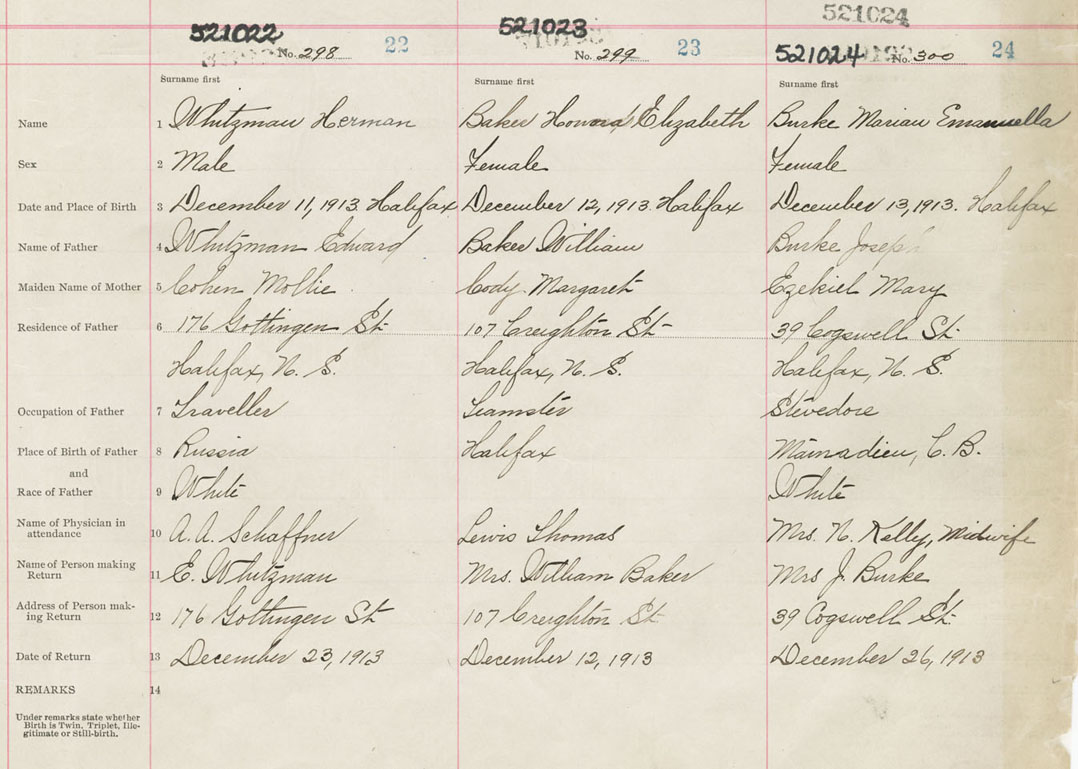 521022
521023
521024
No. 298
22
No. 299
23
521024
No. 300
24
Surname first
Surname first
Surname first
Name 1 Whitzman Herman
Baker Elizabeth
Burke Marian Emanuella
Sex 2 Male
Female
Female
Date and Place of Birth 3 December 11, 1913 Halifax
December 12, 1913 Halifax
December 13, 1913. Halifax
Name of Father 4 Whitzman Edward
Baker William
Burke Joseph
Maiden Name of Mother 5 Cohen Mollie
Cody Margaret
Ezekiel Mary
Residence of Father 6 176 Gottingen St
107 Creighton St
39 Cogswell St
Halifax, N. S.
Halifax, N. S.
Halifax, N. S.
Occupation of Father 7 Traveller
Teamster
Stevedore
Place of Birth of Father 8 Russia
Halifax
Mainadieu, C. B.
and
Race of Father 9 White
White
Name of Physician in
attendance 10 A. A. Schaffner
Lewis Thomas
Mrs. N. Kelly, Midwife
Name of Person making
Return 11 E. Whitzman
Mrs. William Baker
Mrs J. Burke
Address of Person mak-
ing Return 12 176 Gottingen St
107 Creighton St
39 Cogswell St
Date of Return 13 December 23, 1913
December 12, 1913
December 26, 1913
REMARKS 14
Under remarks state whether
Birth is Twin, Triplet, Ille-
gitimate or Still-birth.